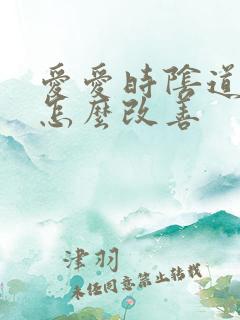 愛愛時陰道
怎麼改善
津羽
未经同意禁止转载